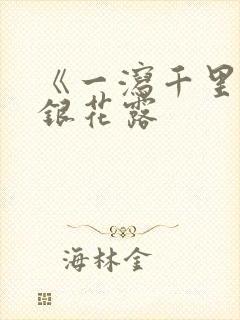 《一瀉千里
銀花露
海林金